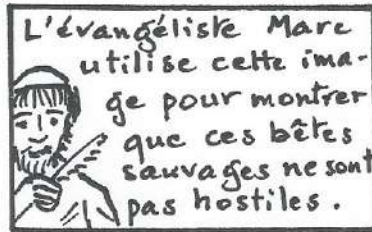 L'évangéliste Marc
utilise cette ima-
ge pour montrer
que ces bêtes
sauvages ne sont
pas hostiles.